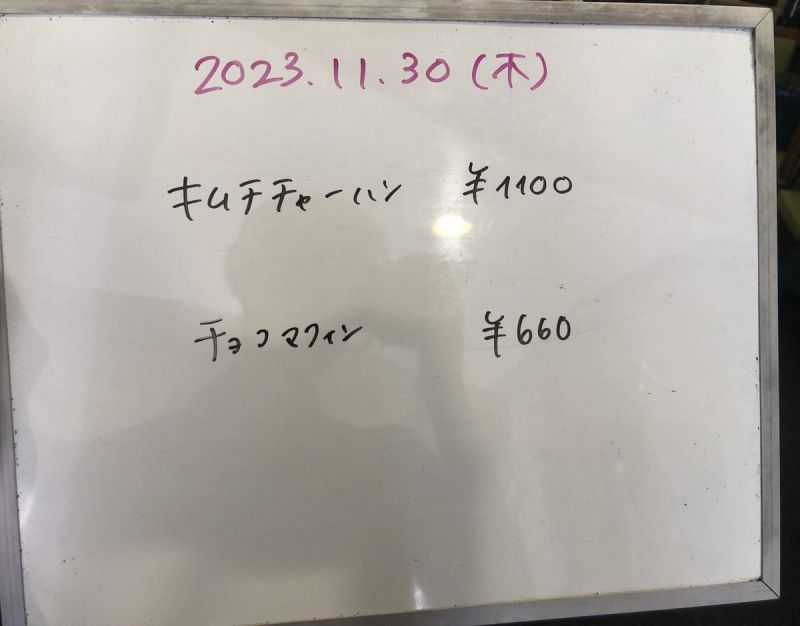 2023.11.30(木)
キムチチャーハン ¥1100
チョコマフィン ¥660